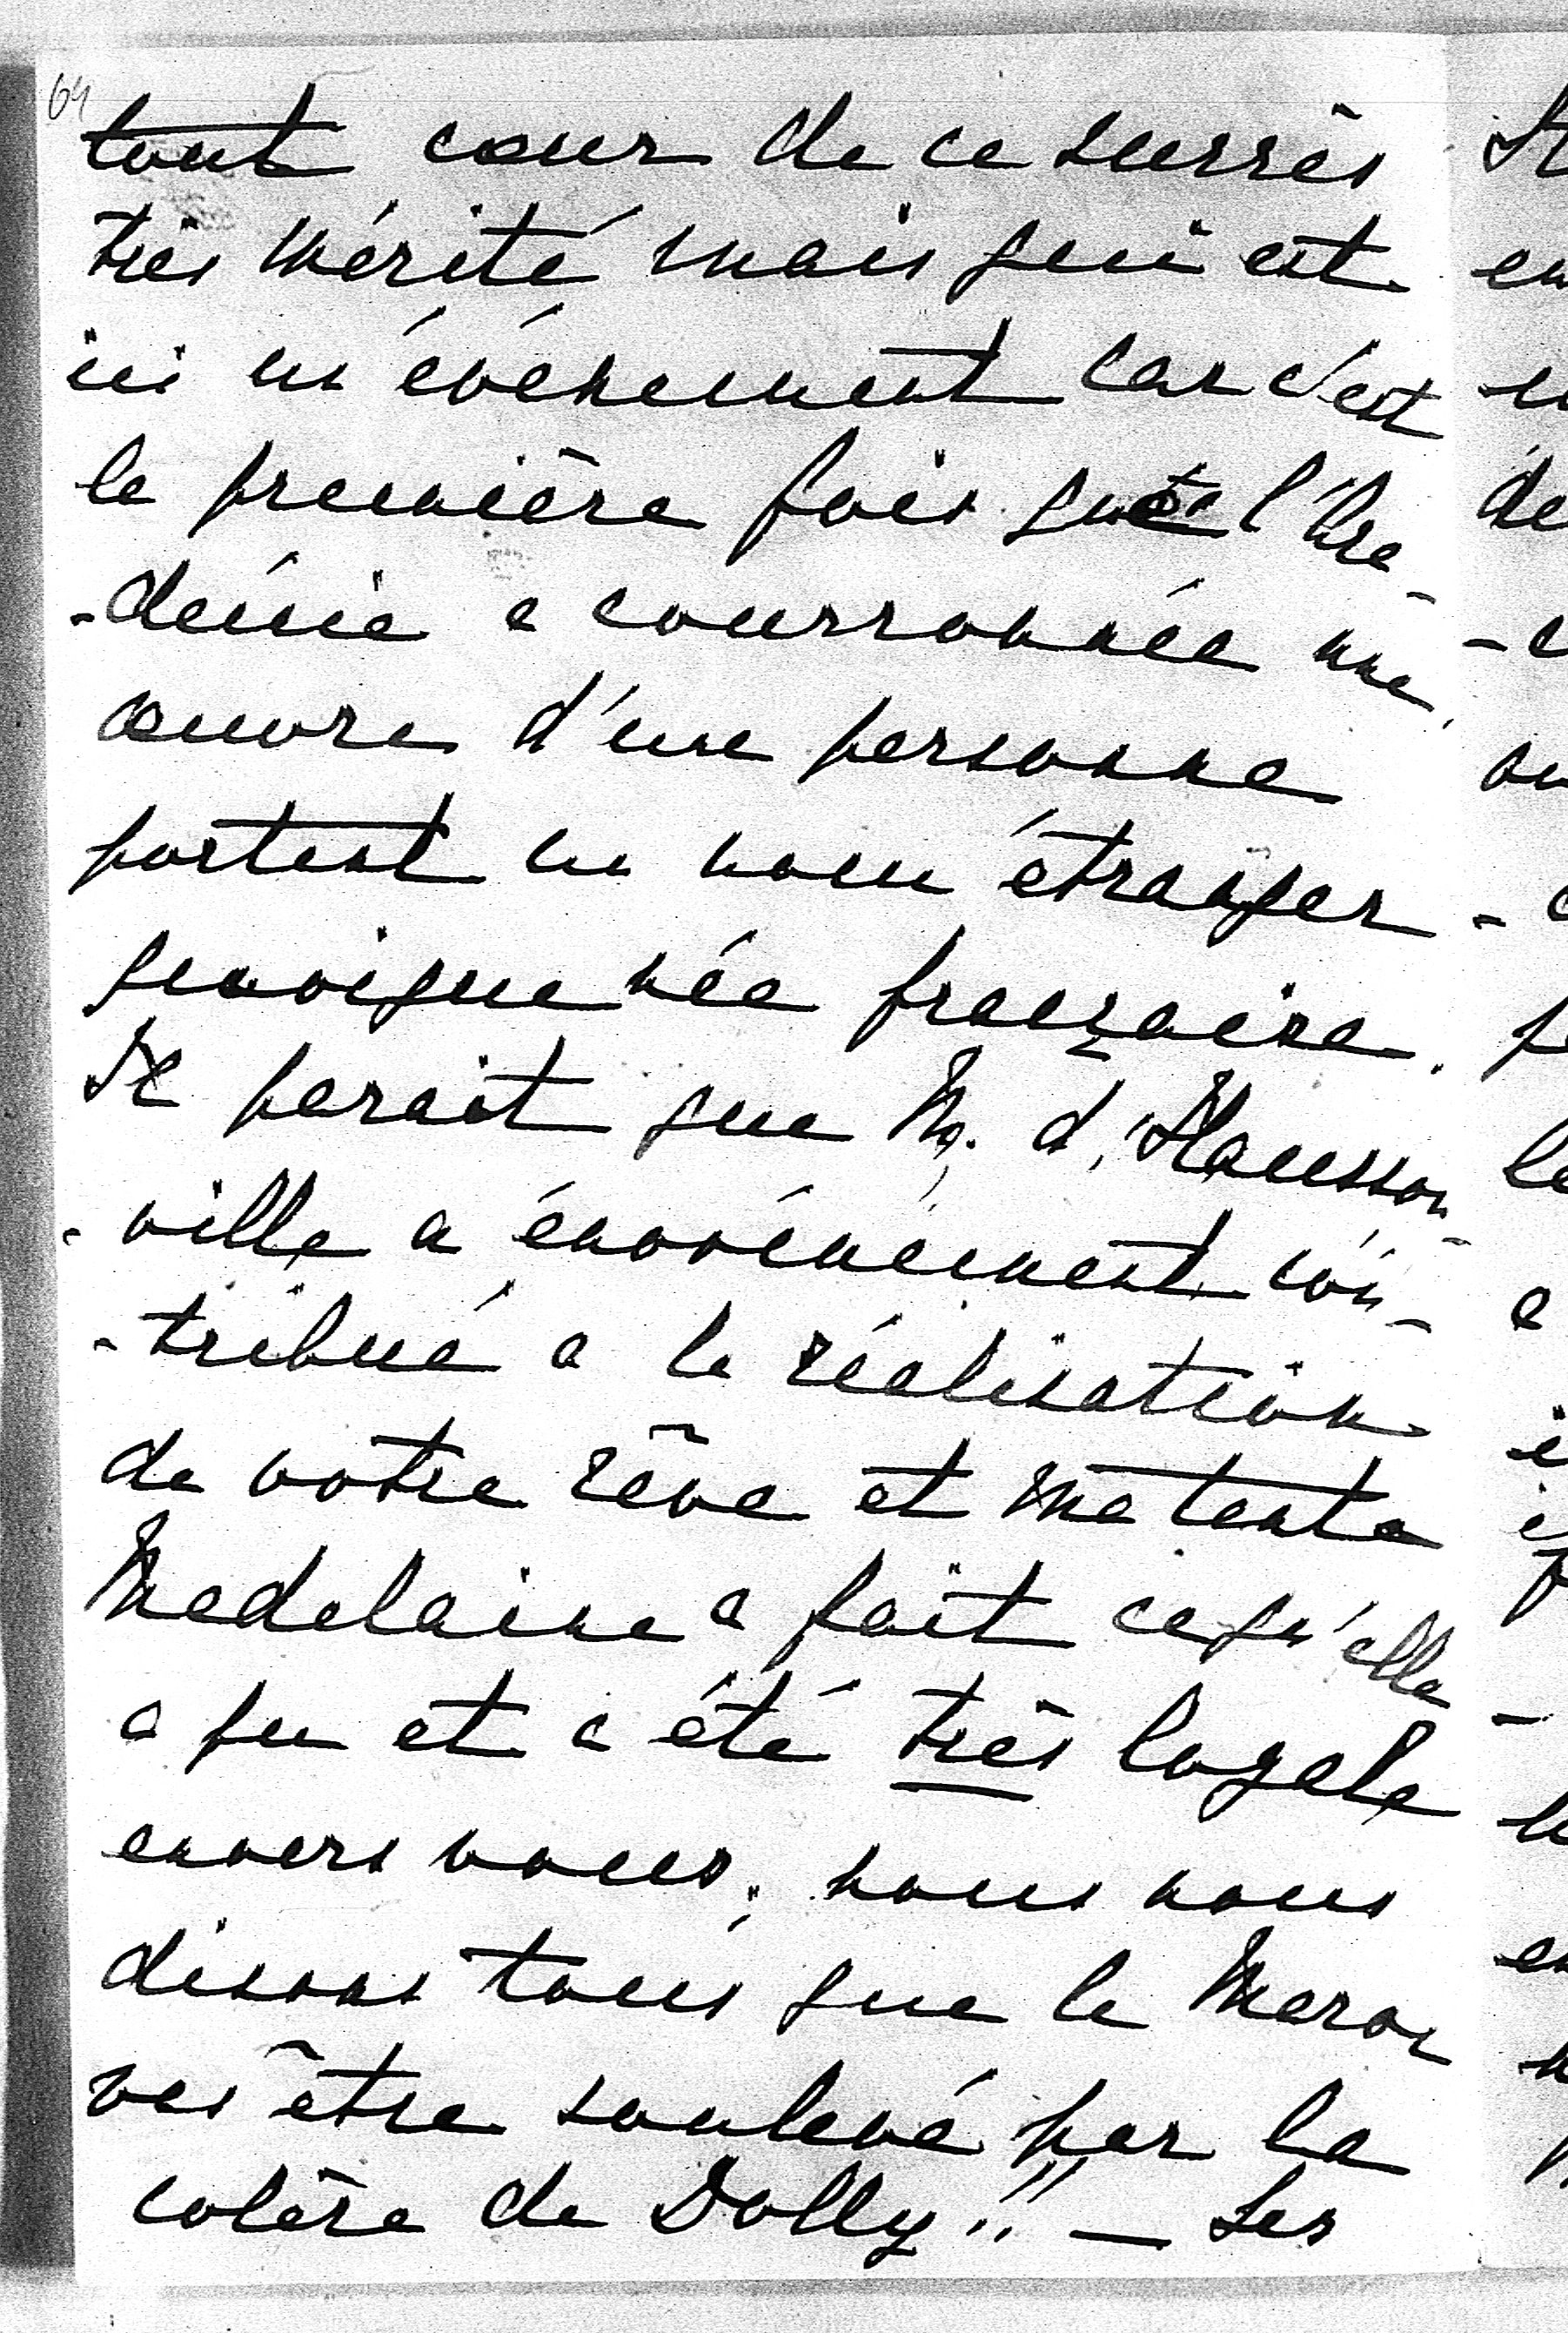 64
tout cœur de ce succès
très mérité mais qui est
ici un événement car c'est
la première fois que l'Aca-
-démie a couronnée une
œuvre d'une personne
portant un nom étranger -
quoique née française.
Il parait que M. d'Hausson-
-ville a énormément con-
-tribué a la réalisation
de votre rêve et ma tante
Madelaine a fait ce qu'elle
a pu et a été très loyale
envers vous; nous nous
disons tous que le Maroc
va être soulevé par la
colère de Dolly!! — Les